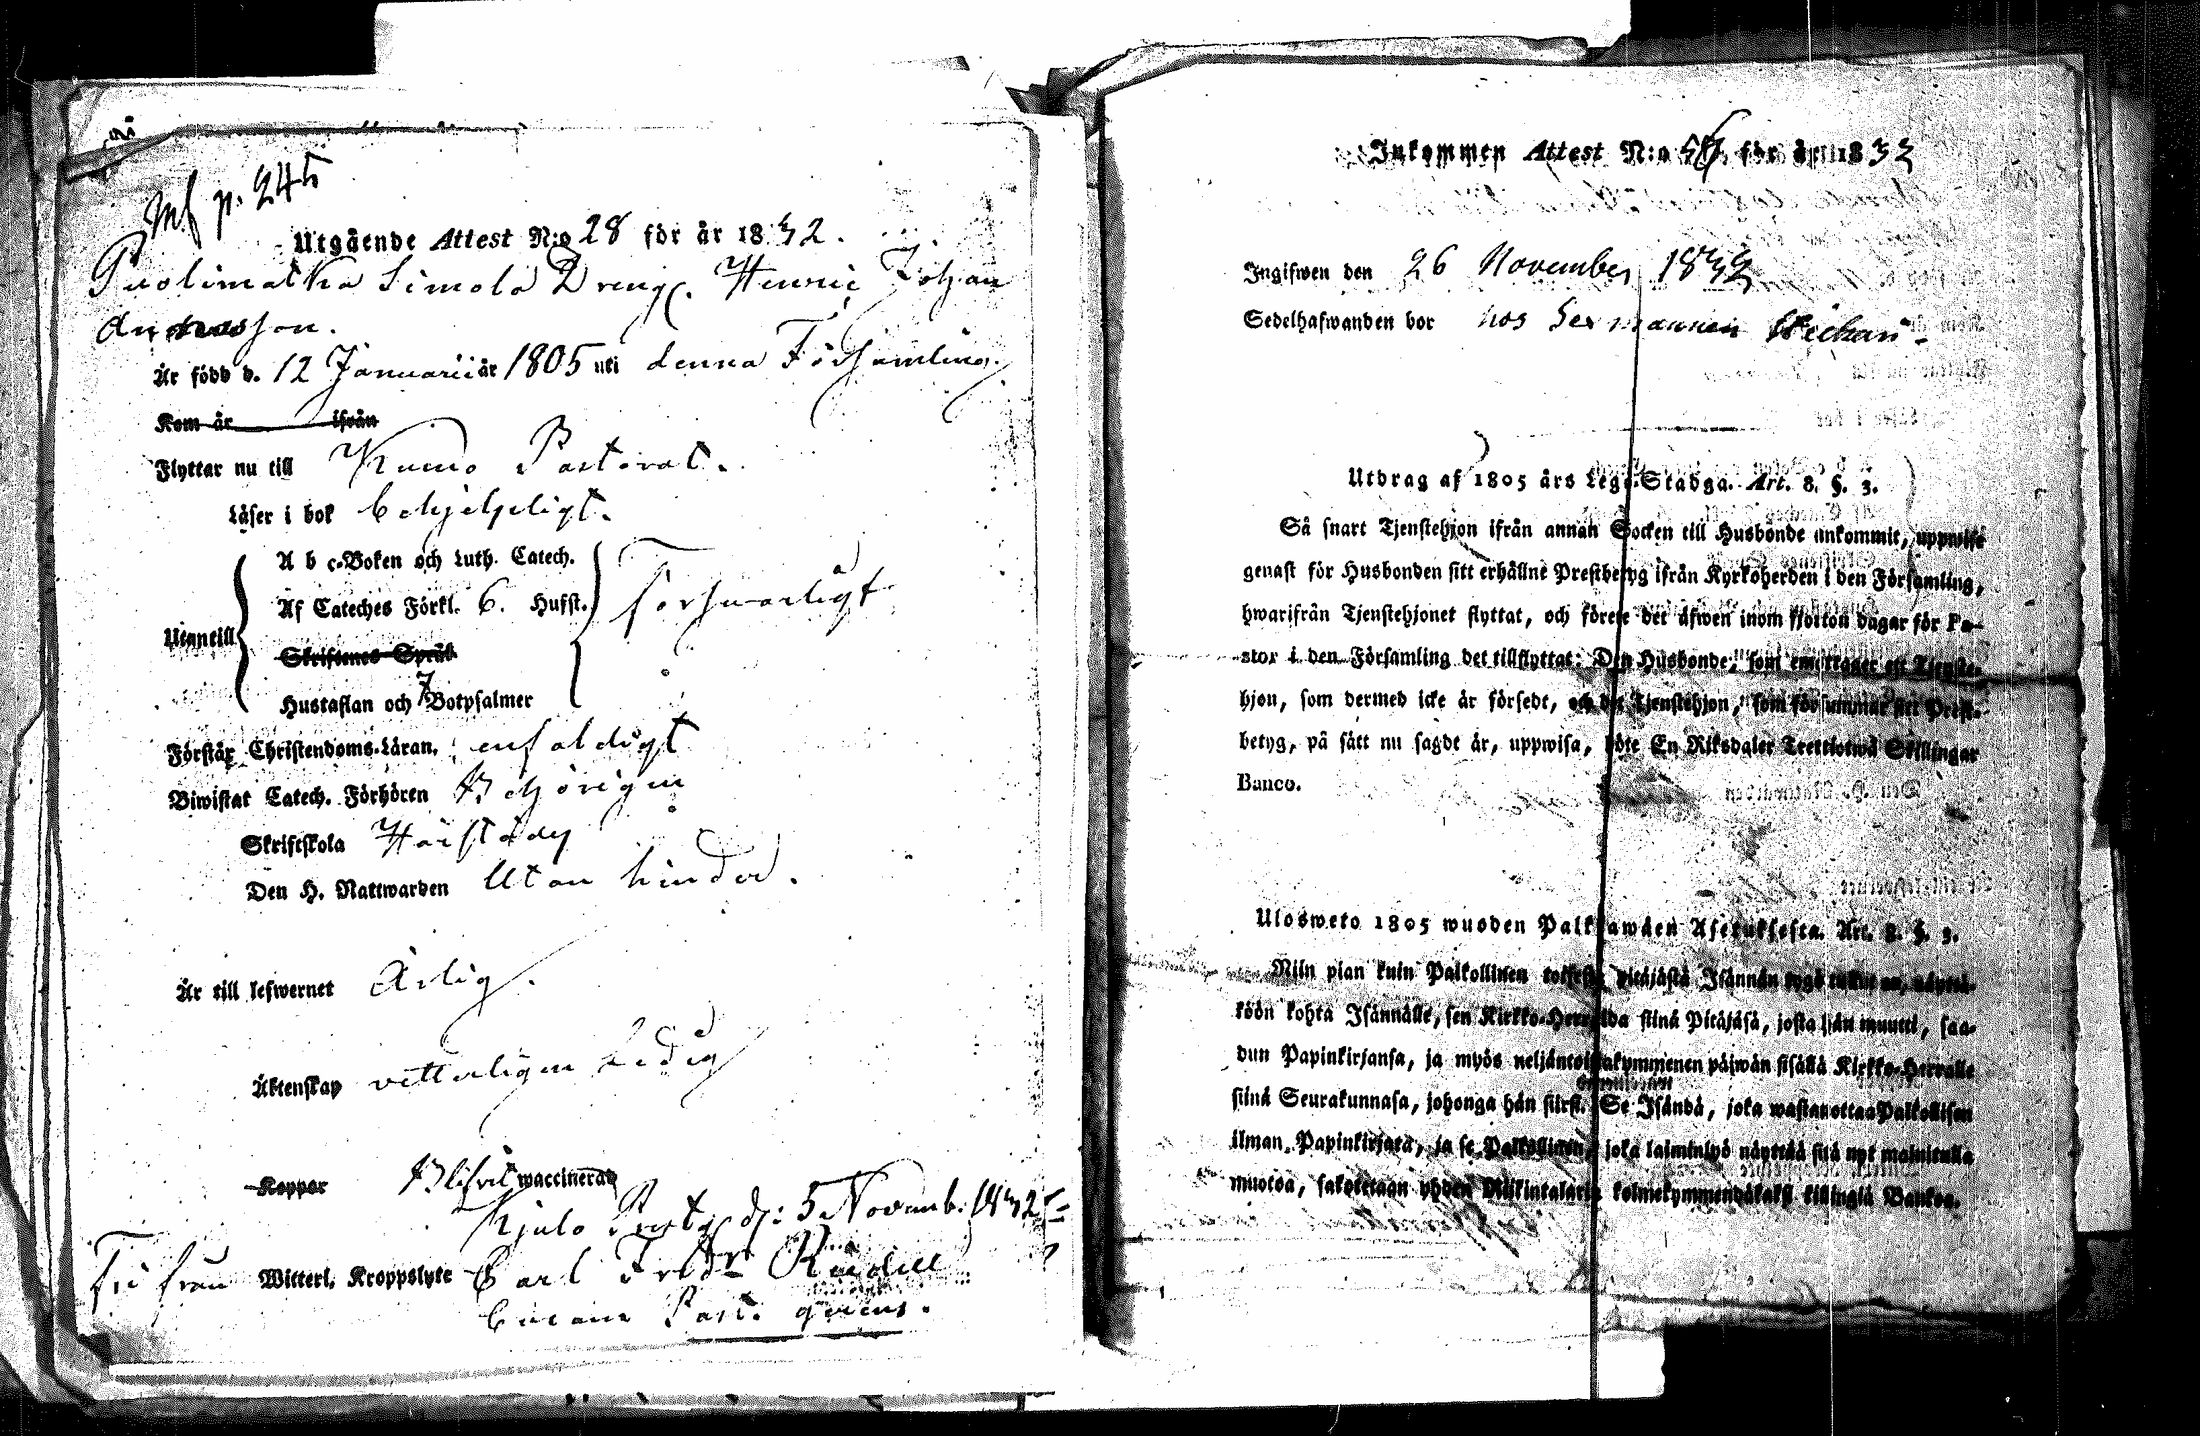 Mf p. 245
Utgående Attest N:o 28 för år 1832.
Puolimatka Simola Dreng. Henric Johan
Andersson.
Är född d. 12 Januarii år 1805 uti denna Församling.
Kom år ifrån
Flyttar nu till Kumo Pastorat.
Läser i bok behjelpligt.
A b c-Boken och Luth. Catech.
Af Cateches Förkl. 6. Hufst. Försvarligt
Utantill
Skriftenes Språk
Hustaflan och 7 Botpsalmer
Förstår Christendoms-Läran. enfaldigt
Biwistat Catech. Förhören Behörigen
Skriftskola
Den H. Nattwarden Utan hinder.
Är till lefwernet Ärlig.
Äktenskap vetterligen Ledig
Koppor Blifvit waccinerad
Kjulo Prestg. d: 5 Novemb: 1832
Fri från Witterl. Kroppslyte Carl Fredr
Past. gerens.
Inkommen Attest N:o för år 1832
Ingifwen den 26 November 1832
Sedelhafwanden bor hos
Utdrag af 1805 års Lego-Stadga. Art. 8. §. 3.
Så snart Tjenstehjon ifrån annan Socken till Husbonde ankommit, uppwise
genast för Husbonden sitt erhållne Prestbetyg ifrån Kyrkoherden i den Församling,
hwarifrån Tjenstehjonet flyttat, och förete det äfwen inom fjorton dagar för Pa-
stor i den Församling det tillflyttat: Den Husbonde, som emottager ett Tjenste-
hjon, som dermed icke är försedt, och det Tjenstehjon, som försummar sitt Prest-
betyg, på sätt nu sagdt är, uppwisa, böte En Riksdaler Trettiotwå Skillingar
Banco.
Ulosweto 1805 wuoden Palkkawäen Asetuksesta. Art. 8. §. 3.
Niin pian kuin Palkollinen toisesta pitäjästä Isännän tygö tullut on, näyttä-
köön kohta Isännälle, sen Kirkko-Herralda siinä Pitäjäsä, josta hän muutti, saa-
dun Papinkirjansa, ja myös neljäntoistakymmenen päiwän sisällä Kirkko-Herralle
siinä Seurakunnasa, johonga hän siirsi. Se Isändä, joka wastanottaa Palkollisen
ilman Papinkirjata, ja se Palkollinen, joka laiminlyö näyttää sitä nyt mainitulla
muotoa, sakotetaan yhden Riikintalarin kolmekymmendäkaksi killingiä Bankoa.